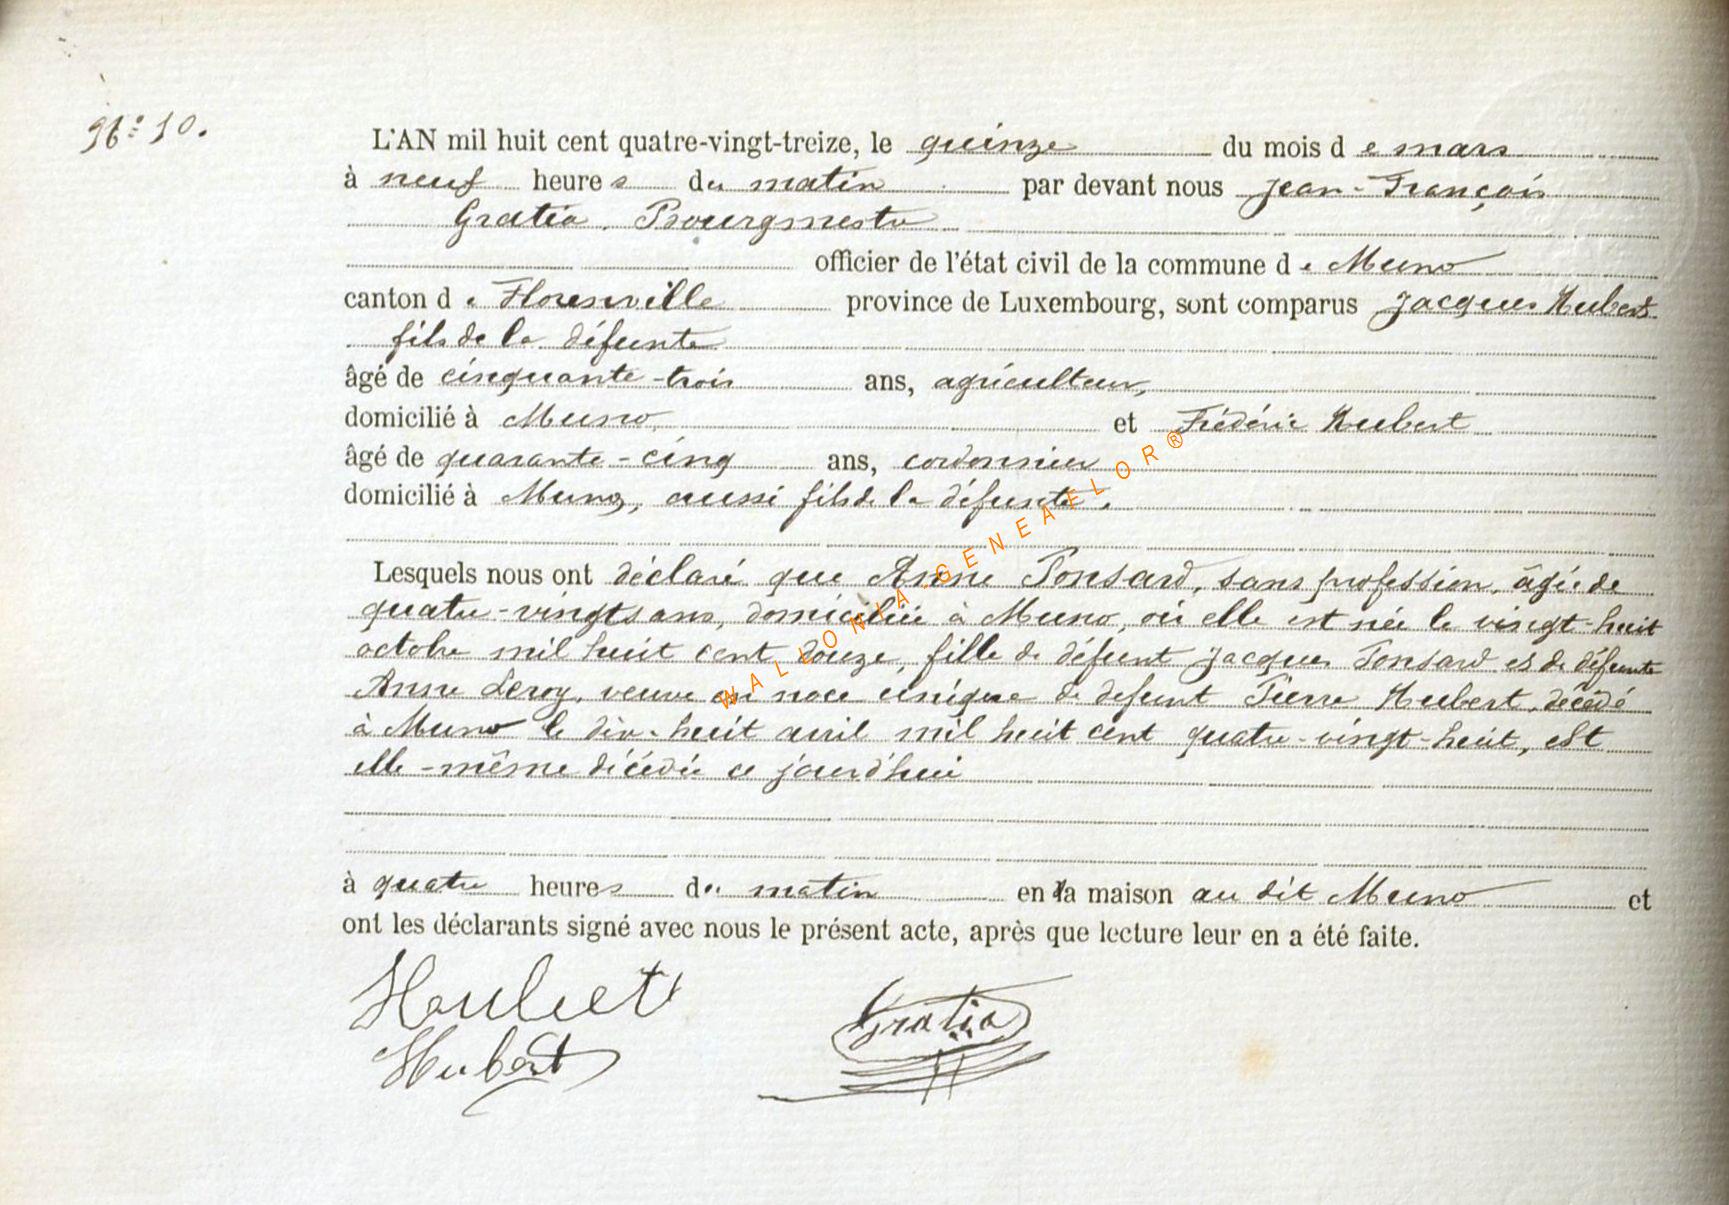 N° 10.
L'AN mil huit cent quatre-vingt-treize, le quinze du mois de mars
à neuf heures du matin par devant nous Jean-François
Gratia, Bourgmestre
officier de l'état civil de la commune de Muno
canton de Florenville province de Luxembourg, sont comparus Jacques Hubert
fils de la défunte
âgé de cinquante-trois ans, agriculteur,
domicilié à Muno, et Frédéric Hubert
âgé de quarante-cinq ans, cordonnier
domicilié à Muno, aussi fils de la défunte.
Lesquels nous ont déclaré que Anne Ponsard, sans profession, âgée de
quatre-vingts ans, domiciliée à Muno, où elle est née le vingt-huit
octobre mil huit cent douze, fille de défunt Jacques Ponsard et de défunte
Anne Leroy, veuve en noce unique de defunt Pierre Hubert, décédé
à Muno le dix-huit avril mil huit cent quatre-vingt-huit, est
elle-même décédée ce jourd'hui
à quatre heures du matin en la maison au dit Muno et
ont les déclarants signé avec nous le présent acte, après que lecture leur en a été faite.
Houbert Gratia
Hubert
WALLONIA-GENEAFLOR®